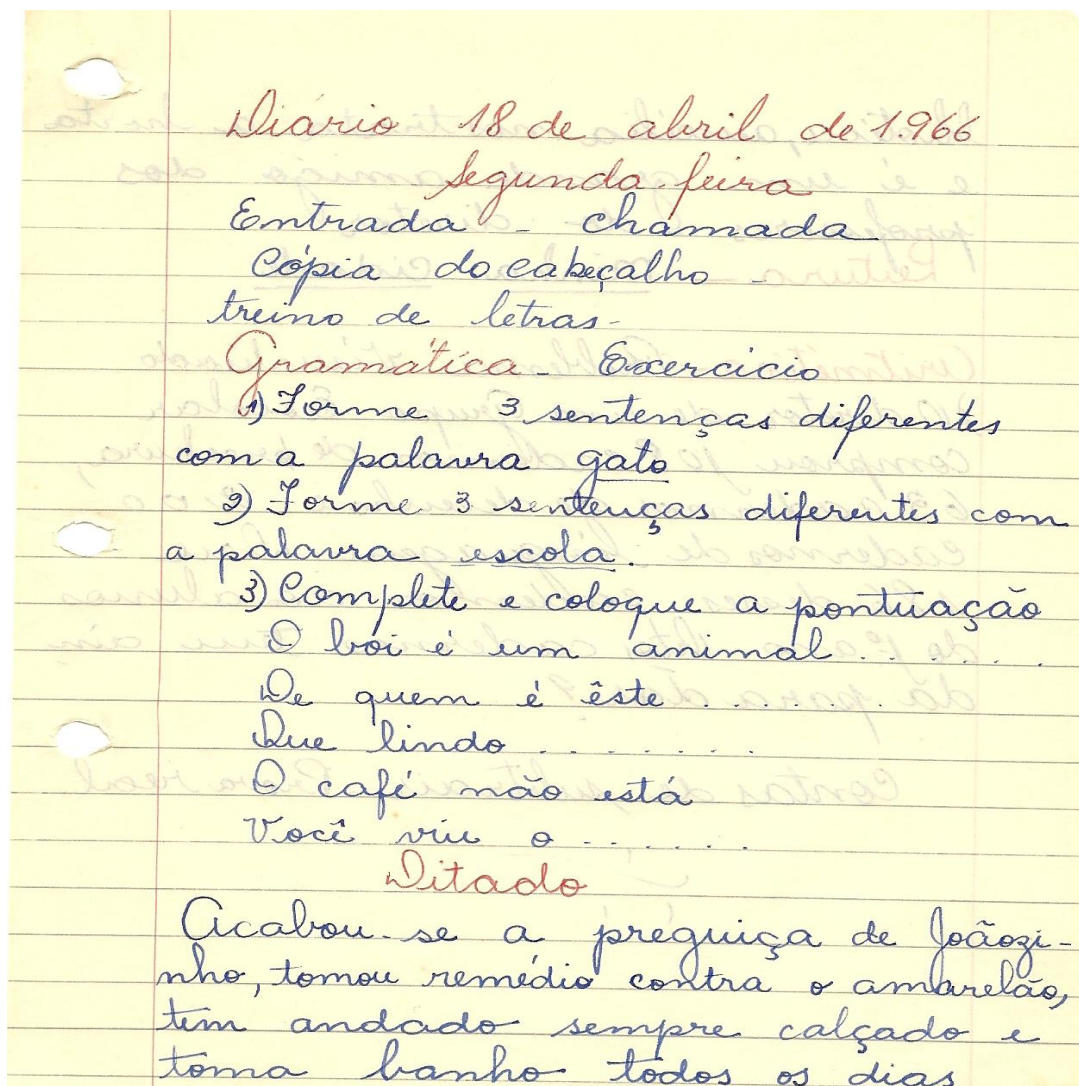 Diário 18 de abril, de 1.966
segunda-feira
Entrada - chamada
Cópia do cabeçalho -
treino de letras-
Gramática - Exercício
1) Forme 3 sentenças diferentes
com a palavra gato
2) Forme 3 sentenças diferentes com
a palavra escola.
3) Complete e coloque a pontuação
O boi é um animal . . . . . .
De quem é êste . . . . . . .
Que lindo . . . . . . .
O café não está
Você viu o . . . . . .
Ditado
Acabou-se a preguiça de Joãozi-
nho, tomou remédio contra o amarelão,
tem andado sempre calçado e
toma banho todos os dias